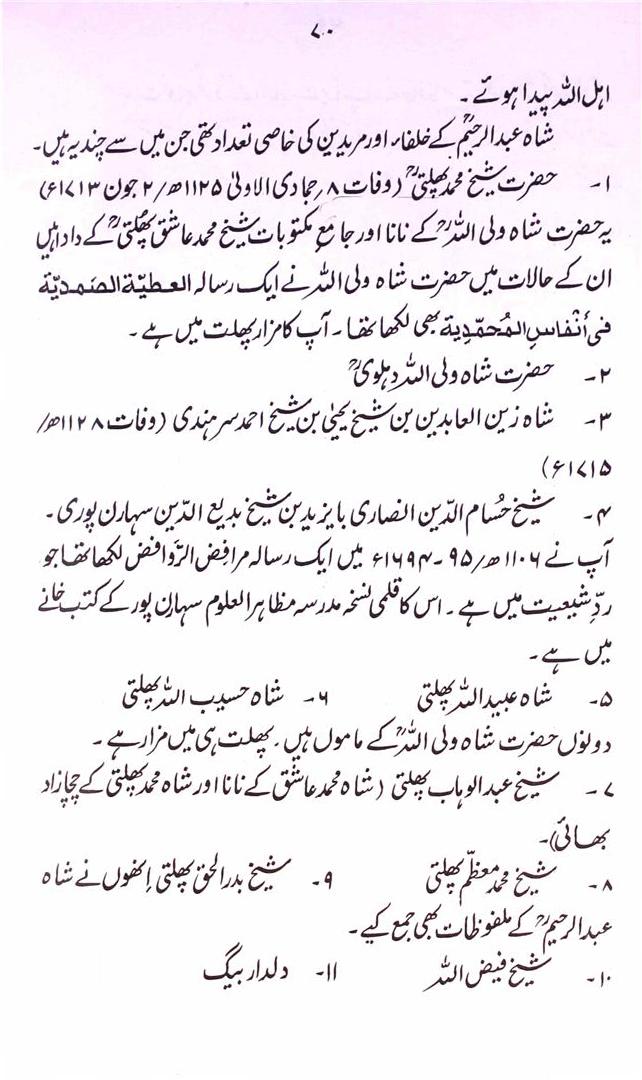 ۷۰
اہل اللہ پیدا ہوئے۔
شاہ عبدالرحیمؒ کے خلفاء اور مریدین کی خاصی تعداد تھی جن میں سے چند یہ ہیں۔
۱۔ حضرت شیخ محمد پھلتیؒ (وفات ۸؍جمادی الاولیٰ ۱۱۲۵ھ/۲ جون ۱۷۱۳ء)
یہ حضرت شاہ ولی اللہؒ کے نانا اور جامع مکتوبات شیخ محمد عاشق پھلتیؒ کے دادا ہیں
ان کے حالات میں حضرت شاہ ولی اللہ نے ایک رسالہ العطیّة الصَمدیّة
فی أنْفاسِ المُحمّدِیة بھی لکھا تھا۔ آپ کا مزار پھلت میں ہے۔
۲۔ حضرت شاہ ولی اللہ دہلویؒ
۳۔ شاہ زین العابدین بن شیخ یحییٰ بن شیخ احمد سرہندی (وفات ۱۱۲۸ھ/
۱۷۱۵ء)
۴۔ شیخ حُسام الدّین انصاری بایزید بن شیخ بدیع الدّین سہارن پوری۔
آپ نے ۱۱۰۶ھ/۹۵۔۱۶۹۴ء میں ایک رسالہ مرافض الرَّوافض لکھا تھا جو
ردِّ شیعیت میں ہے۔ اس کا قلمی نسخہ مدرسہ مظاہر العلوم سہارن پور کے کتب خانے
میں ہے۔
۵۔ شاہ عبید اللہ پھلتی ۶۔ شاہ حسیب اللہ پھلتی
دونوں حضرت شاہ ولی اللہؒ کے ماموں ہیں۔ پھلت ہی میں مزار ہے۔
۷۔ شیخ عبدالوہاب پھلتی (شاہ محمد عاشق کے نانا اور شاہ محمد پھلتی کے چچازاد
بھائی)۔
۸۔ شیخ محمد معظّم پھلتی ۹۔ شیخ بدر الحق پھلتی اِنھوں نے شاہ
عبدالرحیمؒ کے ملفوظات بھی جمع کیے۔
۱۰۔ شیخ فیض اللہ ۱۱۔ دلدار بیگ